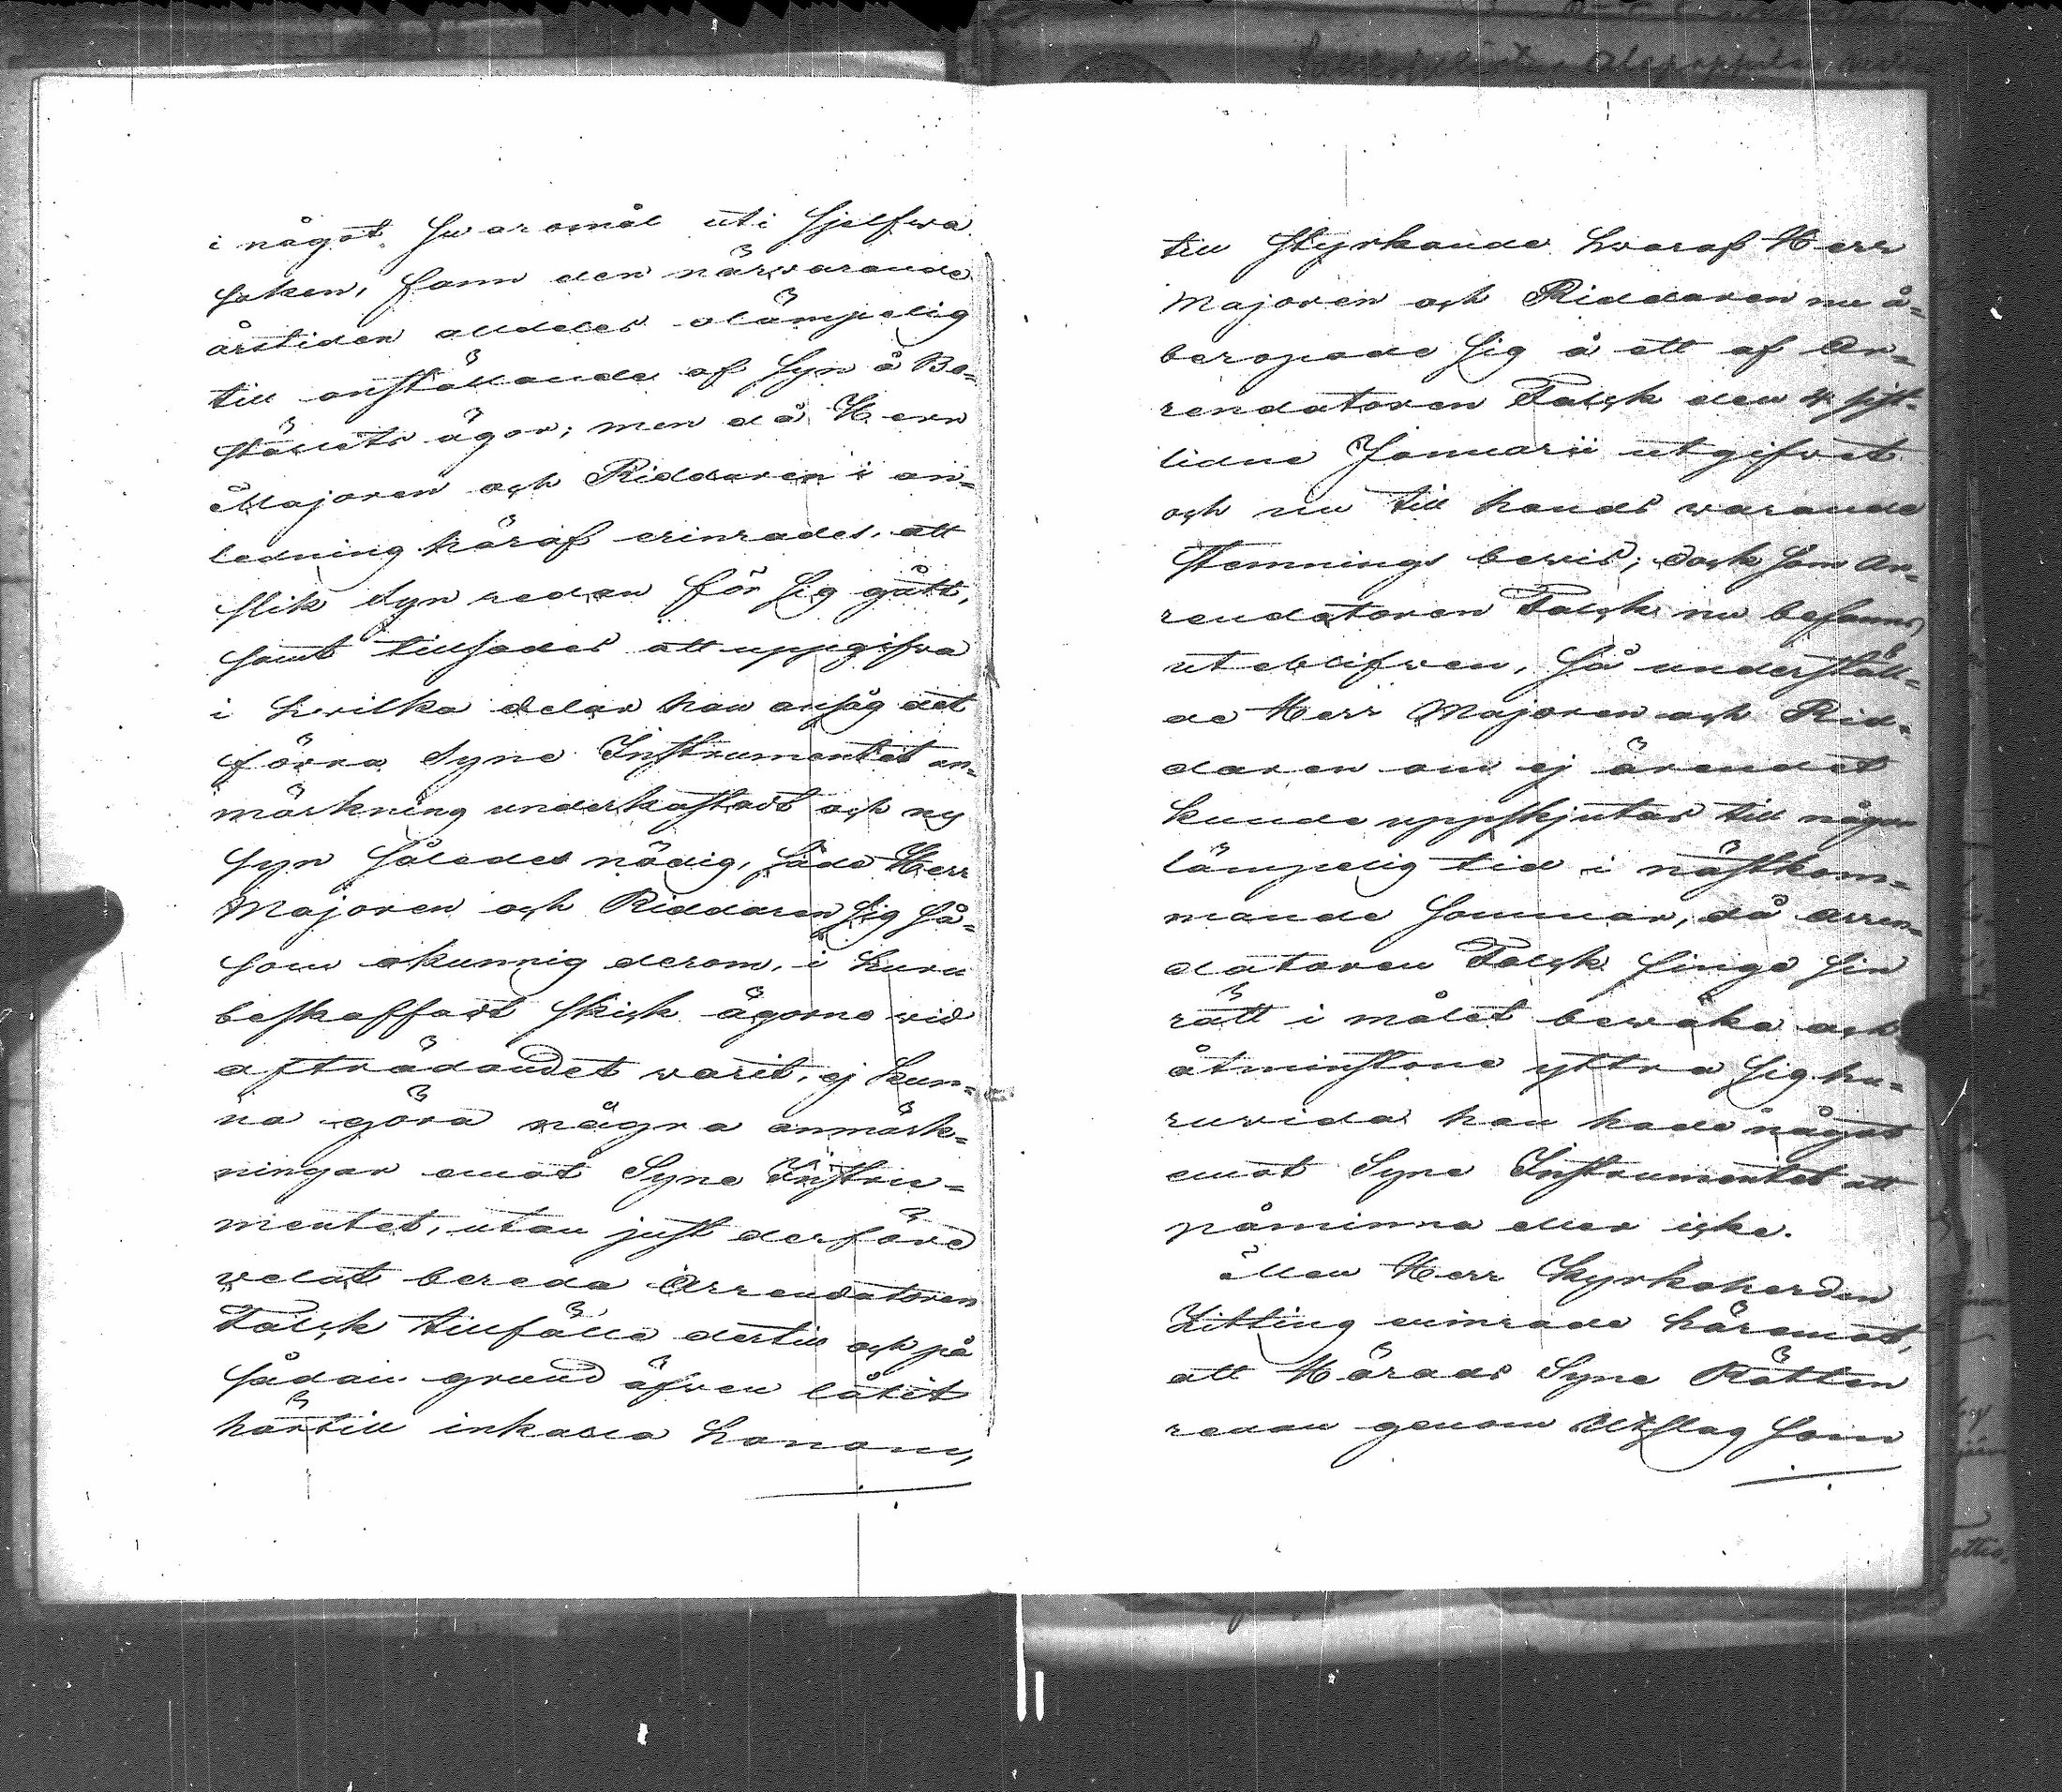 i något swaromål uti sjelfwa
saken, fann den närwarande
årstiden alldeles olämpelig
till anställande af syn å Bo-
ställets ägor; men då Herr
Majoren och Riddaren i an-
ledning häraf erinrades, att
slik syn redan för sig gått,
samt tillsades att uppgifwa
i hwilka delar han ansåg det
förra Syne Instrumentet an-
märkning underkastadt och ny
syn således nödig, sade Herr
Majoren och Riddaren sig så-
som okunnig derom, i huru
beskaffadt skick ägorne wid
afträdandet warit, ej kun-
na göra några anmärk-
ningar emot Syne Instru-
mentet, utan just derföre
welat bereda Arrendatoren
Falck tillfälle dertill och på
sådan grund äfwen låtit
härtill inkalla honom,
till styrkande hwaraf Herr
Majoren och Riddaren nu å-
beropade sig å ett af Ar-
rendatoren Falck den 4 sist-
lidne Januarii utgifwet
och nu till hands warande
stemnings bewis; dock som Ar-
rendatoren Falck nu befanns
uteblifwen, så underställ-
de Herr Majoren och Rid-
daren om ej ärendet
kunde uppskjutas till någon
lämpelig tid i nästkom-
mande sommar, då Arren-
datoren Falck finge sin
rätt i målet bewaka och
åtminstone yttra sig hu-
ruwida han hade något
emot Syne Instrumentet att
påminna eller icke.
Men Herr Kyrkoherden
Zitting erinrade häremot,
att Härads Syne Rätten
redan genom Utslag som